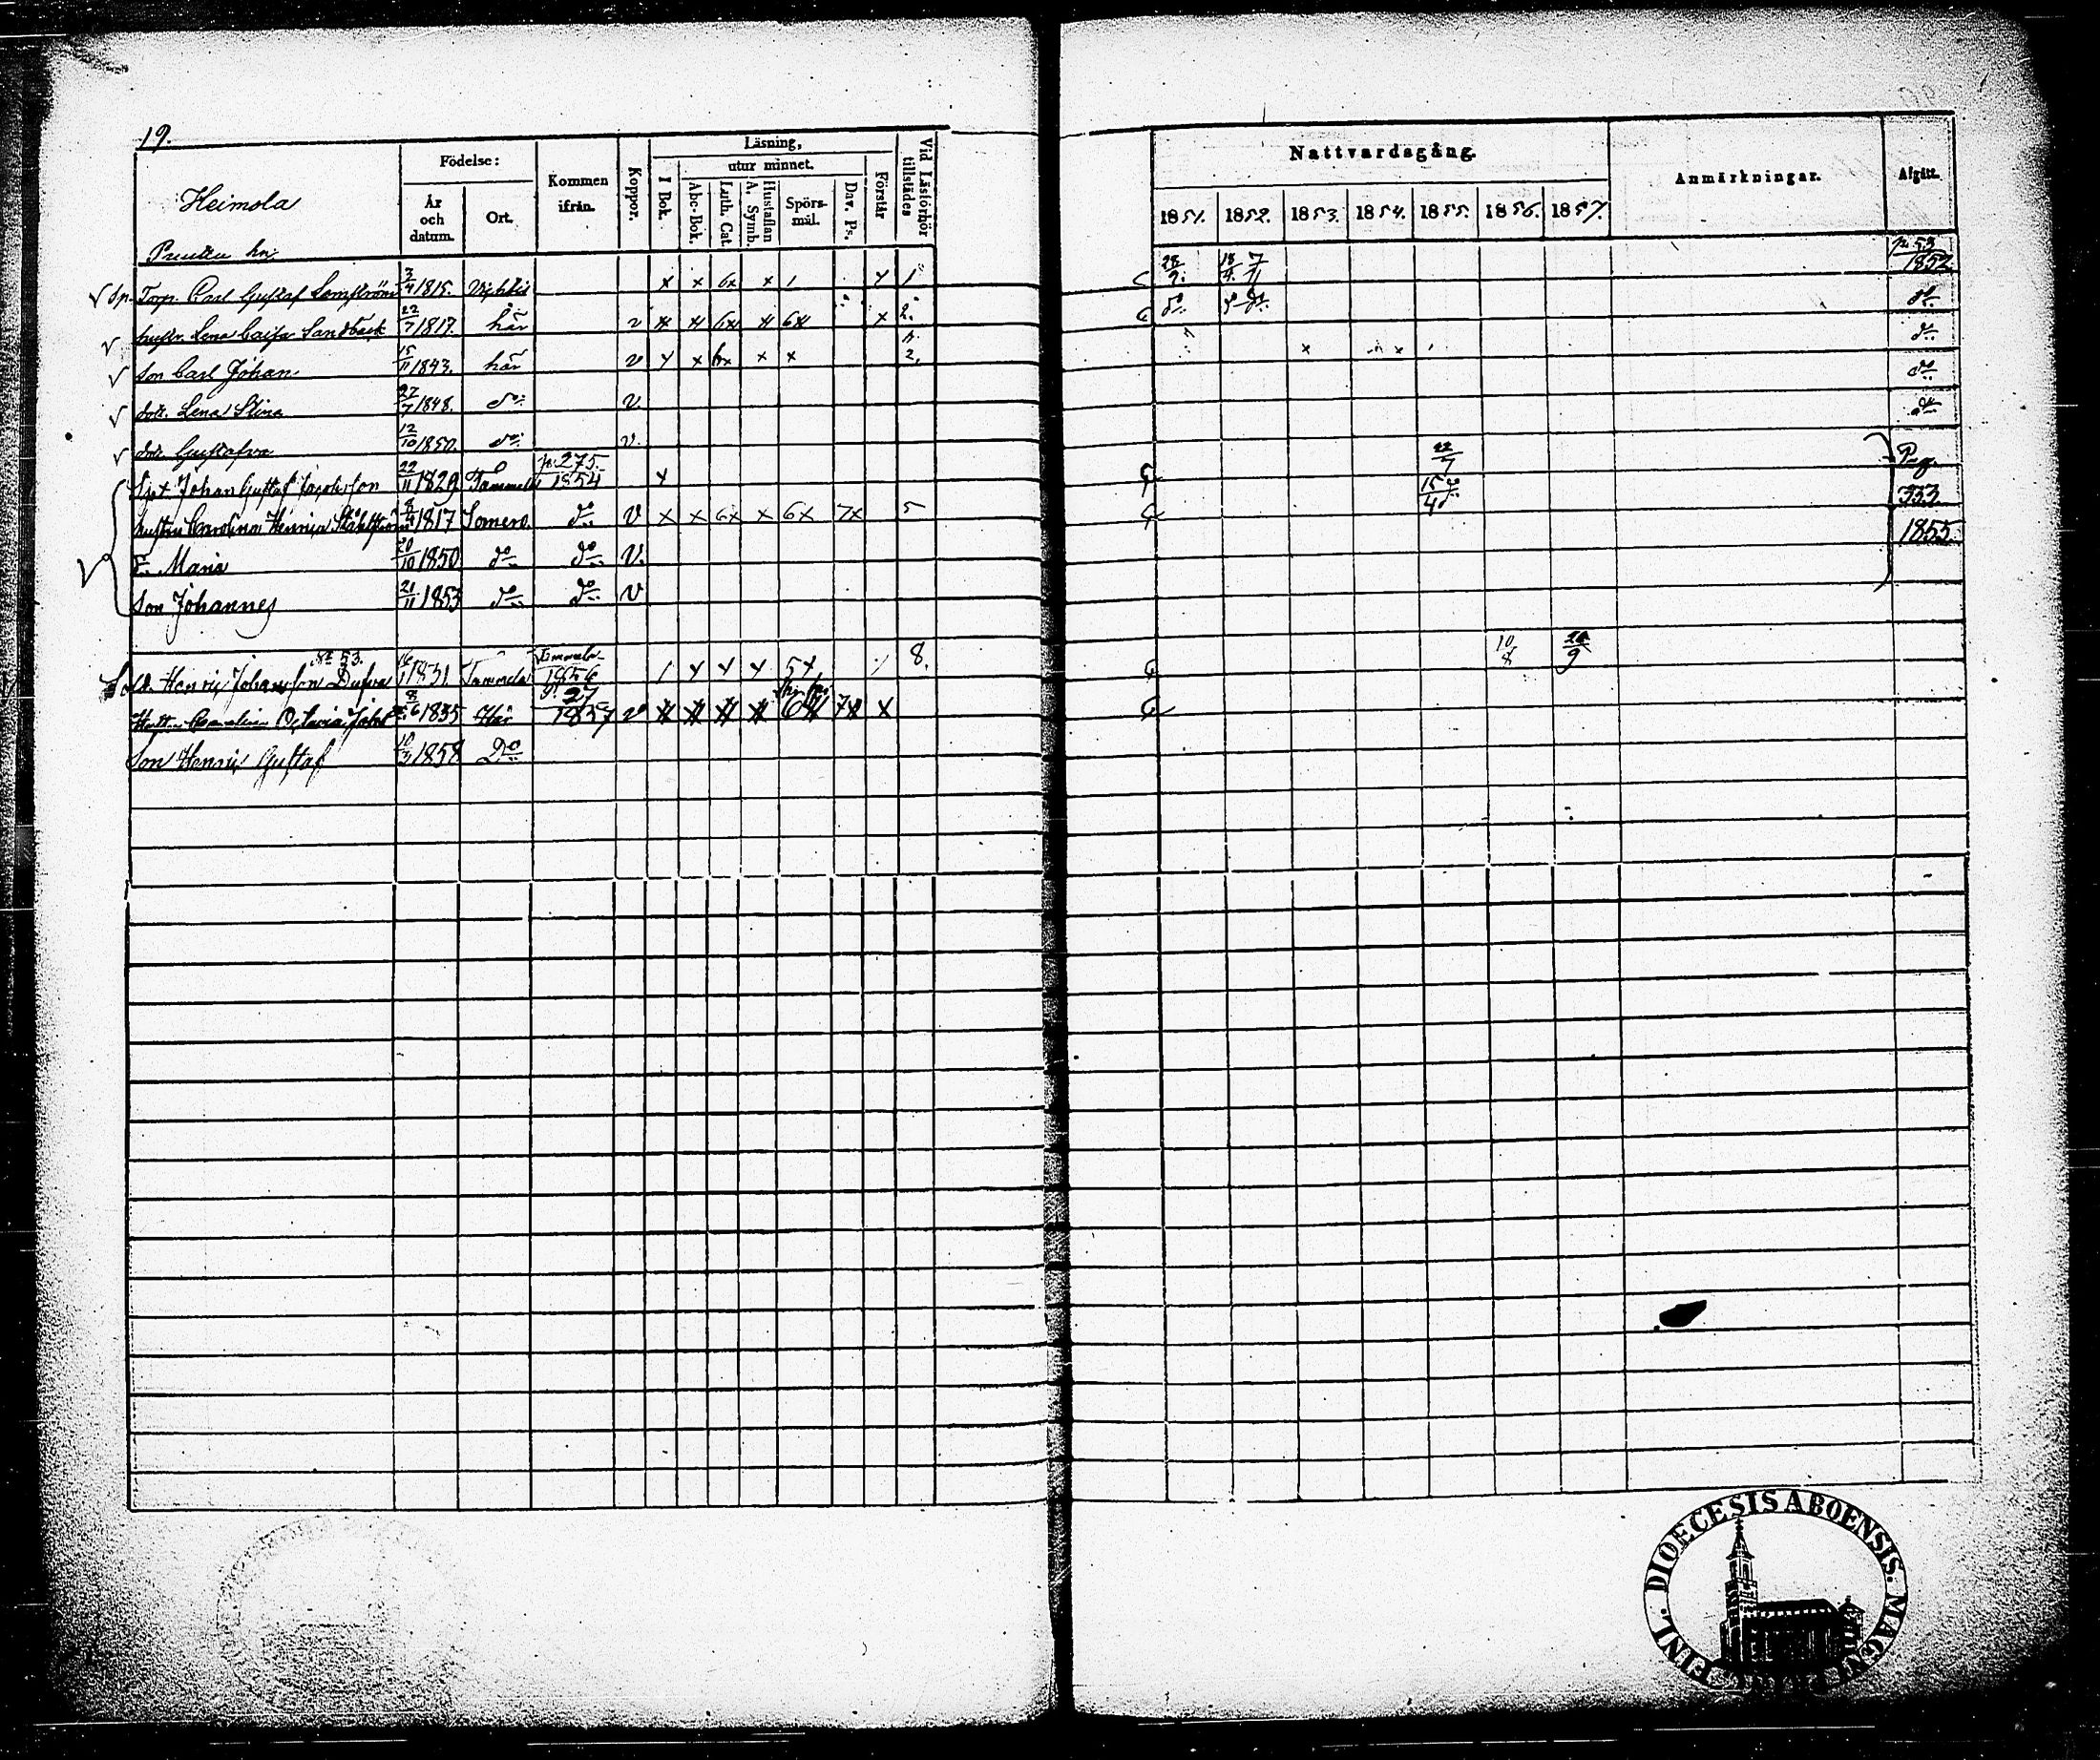 19.
Heimola
Födelse:
År och datum.
Ort.
Kommen ifrån.
Koppor.
Läsning,
I Bok.
utur minnet.
Abc-Bok.
Luth. Cat.
Hustaflan A. Symb.
Spörsmål.
Dav. Ps.
Förstår
Vid Läsförhör tillstädes
Nattvardsgång.
1851. 1852. 1853. 1854. 1855. 1856. 1857.
Anmärkningar.
Afgått.
p. 53 1852
Torp. Carl Gustaf 3/4 1815. x x 6x x 1 1 28/9. 18/4 7/11
Lena Caisa Sandbäck 22/7 1817. här v x x 6x x 6x x 2. do do
Son Carl Johan 15/11 1843. här v x x 6x x x 2. do
dotr. Lena Stina 27/7 1848. do v. do
dotr. Gustafva 12/10 1850. do v. do
Johan Gustaf Jacobsson 22/11 1829 Tammela p. 275. 1854 x 22/7 Pag. 333 1855
hustru Carolina Henrica Ståhlström 8/4 1817 Somero do v x x 6x x 6x 7x 5 15/4 do
D. Maria 20/10 1850 do do v.
Son Johannes 21/11 1853 do do v
No 53.
Sold. Henric Johansson Dufva 1831 Tammela Tammela 1856 1 x x x 5x 8. 10/8 20/9
Octavia 8/6 1835 Här p. 27 1857 v x x x x 6x 7x x
Son Henric Gustaf 10/3 1858 Do
FINL. DIOECESIS ABOENSIS. MAGNI